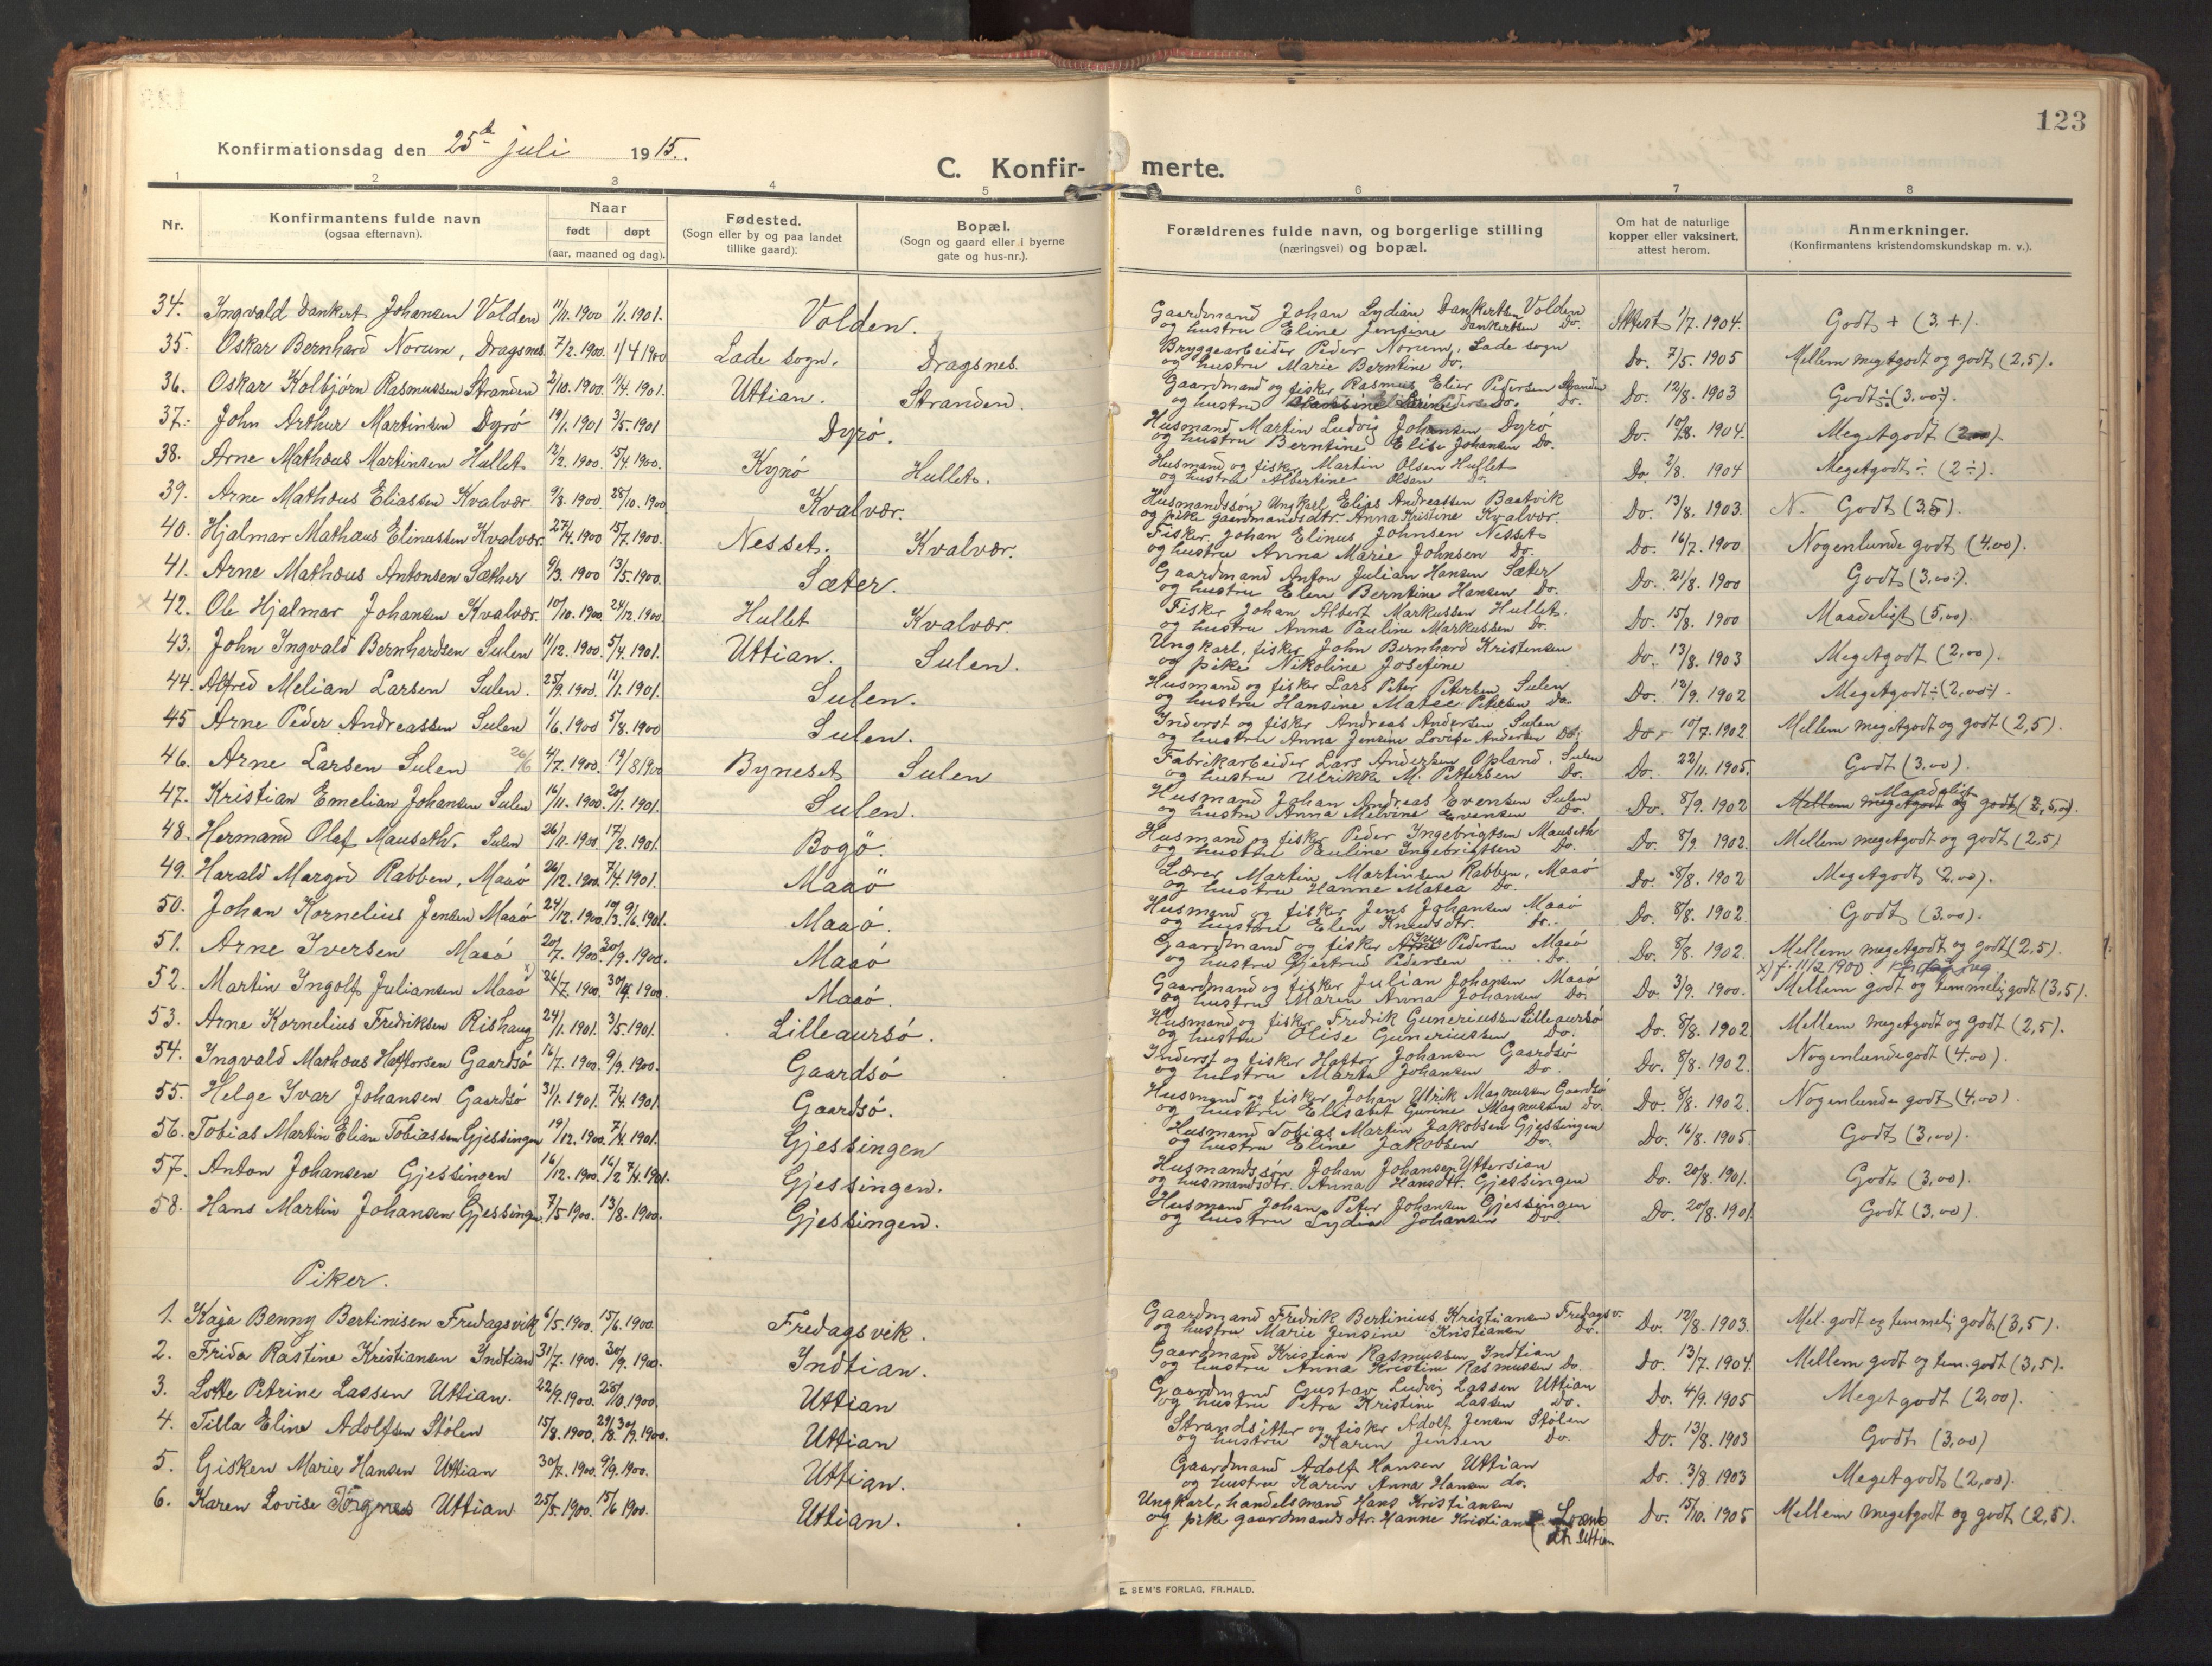 123
Konfirmationsdag den 25de juli 1915.
C. Konfir- merte.
1 2 3 4 5 6 7 8
Nr.
Konfirmantens fulde navn
(ogsaa efternavn).
Naar
født døpt
(aar, maaned og dag).
Fødested.
(Sogn eller by og paa landet
tillike gaard).
Bopæl.
(Sogn og gaard eller i byerne
gate og hus-nr.).
Forældrenes fulde navn, og borgerlige stilling
(næringsvei) og bopæl.
Om hat de naturlige
kopper eller vaksinert,
attest herom.
Anmerkninger.
(Konfirmantens kristendomskundskap m. v.).
34. Ingvald Dankert Johansen Volden 11/11. 1900 1/1. 1901. Volden. Gaardmand Johan Lydian Dankertsen Volden Attest 1/7. 1904. Godt + (3.+).
og hustru Eline Jensine Dankertsen Do.
35. Oskar Bernhard Norum, Dragsnes. 7/2. 1900. 1/4 1900 Lade sogn. Dragsnes. Bryggearbeider Peder Norum, Lade sogn Do. 7/5. 1905 Mellem megetgodt og godt (2,5).
og hustru Marie Berntine Do.
36. Oskar Kolbjørn Rasmussen Stranden 2/10. 1900. 1/4. 1901. Uttian. Stranden. Gaardmand og fisker Rasmus Elier Pedersen Stranden Do. 12/8. 1903 Godt÷(3.00÷).
og hustru Do. Do.
37. John Arthur Martinsen Dyrö 19/1. 1901 3/5. 1901 Dyrö. Husmand Martin Ludvig Johansen Dyrö Do. 10/8. 1904. Megetgodt (2.00)
og hustru Berntine Elise Johansen Do.
38. Arne Mathæus Martinsen Hullet 12/2. 1900. 15/4. 1900. Kyrö Hullet. Husmand og fisker Martin Olsen Hullet Do. 2/8. 1904 Megetgodt ÷ (2÷).
og hustru Albertine Olsen Do.
39. Arne Mathæus Eliassen Kvalvær 9/8. 1900. 28/10. 1900 Kvalvær. Husmandssøn Ungkarl Elias Andreassen Baatvik Do. 13/8. 1903. N. Godt (3.5).
og pike gaardmandsdtr. Anna Kristine Kvalvær.
40. Hjalmar Mathæus Elinussen Kvalvær. 27/4. 1900 15/7. 1900. Nesset. Kvalvær. Fisker Johan Elinus Johnsen Nesset Do. 16/7. 1900 Nogenlunde godt (4.00).
og hustru Anna Marie Johnsen Do.
41. Arne Mathæus Antonsen Sæther 9/3. 1900 13/5. 1900. Sæter. Gaardmand Anton Julian Hansen Sæter Do. 21/8. 1900 Godt (3,00÷).
og hustru Elen Berntine Hansen Do.
42. Ole Hjalmar Johansen Kvalvær. 10/10. 1900. 24/12. 1900 Hullet Kvalvær. Fisker Johan Albert Markussen Hullet. Do. 15/8. 1900 Maadeligt (5,00).
og hustru Anna Pauline Markussen Do.
43. John Ingvald Bernhardsen Sulen 11/12. 1900. 5/4. 1901. Uttian. Sulen. Ungkarl, fisker John Bernhard Kristensen Do. 13/8. 1903 Megetgodt (2,00).
og pike Nikoline Josefine
44. Alfred Melian Larsen Sulen. 25/9. 1900. 11/1. 1901. Sulen. Husmand og fisker Lars Peter Petersen Sulen Do. 12/9. 1902 Megetgodt÷(2,00÷).
og hustru Hansine Matee Petersen Do.
45 Arne Peder Andreassen Sulen 1/6. 1900 5/8. 1900 Sulen. Inderst og fisker Andreas Andersen Sulen Do. 10/7. 1902 Mellem megetgodt og godt (2,5).
og hustru Anna Jensine Lovise Andersen Do.
46. Arne Larsen Sulen 26/6 4/7. 1900. 19/8 1900 Byneset Sulen Fabrikarbeider Lars Andersen Opland, Sulen Do. 22/11. 1905. Godt (3,00).
og hustru Ulrikke M. Pettersen Do.
47. Kristian Emelian Johansen Sulen 16/11. 1900. 20/1. 1901. Sulen. Husmand Johan Andreas Evensen Sulen Do. 8/9. 1902 Maadeligt Mellem megetgodt og godt (2,5,0).
og hustru Anna Melvine Evensen Do.
48. Hermand Olaf Mauseth. Sulen 26/11. 1900. 17/2. 1901. Bogö. Husmand og fisker Peder Ingebrigtsen Mauseth Do. 8/9. 1902. Mellem megetgodt og godt (2,5)
og hustru Pauline Ingebrigtsen Do.
49. Harald Margod Rabben, Maaö 26/12. 1900. 7/4. 1901. Maaö Lærer Martin Martinsen Rabben, Maaö Do. 8/8. 1902 Megetgodt (2,00).
og hustru Hanne Matea Do.
50. Johan Kornelius Jensen Maaö 24/12. 1900. 10/3. 9/6. 1901. Maaö. Husmand og fisker Jens Johansen Maaö Do. 8/8. 1902. Godt (3.00).
og hustru Elen Knudsdtr. Do.
51. Arne Iversen Maaö 20/7. 1900. 30/9. 1900. Maaö Gaardmand og fisker Iver Pedersen Maaö Do. 8/8. 1902. Mellem megetgodt og godt (2,5).
og hustru Gjertrud Pedersen Do.
x) f. 11/2 1900
52. Martin Ingolf Juliansen Maaö x) 26/7. 1900. 30/4. 1900. Maaö. Gaardmand og fisker Julian Johansen Maaö Do. 3/9. 1900. Mellem godt og temmelig godt (3,5).
og hustru Maren Anna Johansen Do.
53. Arne Kornelius Fredriksen Rishaug 24/1. 1901. 3/5. 1901. Lilleaursö. Husmand og fisker Fredrik Guneriussen Lilleaursö Do. 8/8. 1902 Mellem megetgodt og godt (2,5).
og hustru Elise Guneriussen Do.
54. Ingvald Mathæus Haftorsen Gaardsö 16/7. 1900. 9/9. 1900. Gaardsö Inderst og fisker Haftor Johansen Gaardsö Do. 8/8. 1902. Nogenlundegodt (4.00).
og hustru Marta Johansen Do.
55. Helge Ivar Johansen Gaardsö 31/1. 1901. 7/4. 1901. Gaardsö. Husmand og fisker Johan Ulrik Magnussen Gaardsö Do. 8/8. 1902. Nogenlunde godt (4,00).
og hustru Elisabet Gurine Magnussen Do.
56. Tobias Martin Elian Tobiassen Gjessingen 19/12. 1900. 7/4. 1901. Gjessingen Husmand Tobias Martin Jakobsen Gjessingen Do. 16/8. 1905. Godt (3,00).
og hustru Eline Jakobsen Do.
57. Anton Johansen Gjessingen 16/12. 1900. 16/2 7/4. 1901. Gjessingen. Husmandssøn Johan Johansen Yttersian Do. 20/8. 1901. Godt (3,00).
og husmandsdtr. Anna Hansdtr. Gjessingen
58. Hans Martin Johansen Gjessingen. 7/5 1900. 13/8. 1900. Gjessingen. Husmand Johan Peter Johansen Gjessingen Do. 20/8. 1901 Godt (3,00).
og hustru Lydia Johansen Do.
Piker.
1. Kaja Benny Bertinisen Fredagsvik 6/5. 1900. 15/6. 1900. Fredagsvik. Gaardmand Fredrik Bertinius Kristiansen Fredagsv. Do. 12/8. 1903. Mel. godt og temmelig godt (3,5).
og hustru Marie Jensine Kristiansen Do.
2. Frida Rastine Kristiansen Indtian 31/7. 1900. 30/9. 1900. Indtian. Gaardmand Kristian Rasmussen Indtian Do. 13/7. 1904. Mellem godt og tem. godt (3,5).
og hustru Anna Kristine Rasmussen Do.
3. Lotte Petrine Lassen Uttian. 22/9. 1900. 28/10. 1900. Uttian Gaardmand Gustav Ludvig Lassen Uttian Do. 4/9. 1905 Megetgodt (2,00).
og hustru Petra Kristine Lassen Do.
4. Tilla Eline Adolfsen Stölen 15/8. 1900. 29/8. 30/9. 1900. Uttian Strandsitter og fisker Adolf Jensen Stölen Do. 13/8. 1903 Godt (3,00)
og hustru Karen Jensen Do.
5. Gisken Marie Hansen Uttian 30/7. 1900. 9/9. 1900. Uttian. Gaardmand Adolf Hansen Uttian Do. 3/8. 1903 Megetgodt (2,00).
og hustru Karen Anna Hansen do.
6. Karen Lovise Torgnes Uttian 25/5. 1900. 15/6 1900. Uttian. Ungkarl, handelsmand Hans Kristiansen Do. 15/10. 1905 Mellem megetgodt og godt (2,5).
og pike gaardmandsdtr. Hanne Kristian
dtr. Uttian
E. SEM'S FORLAG, FR.HALD.